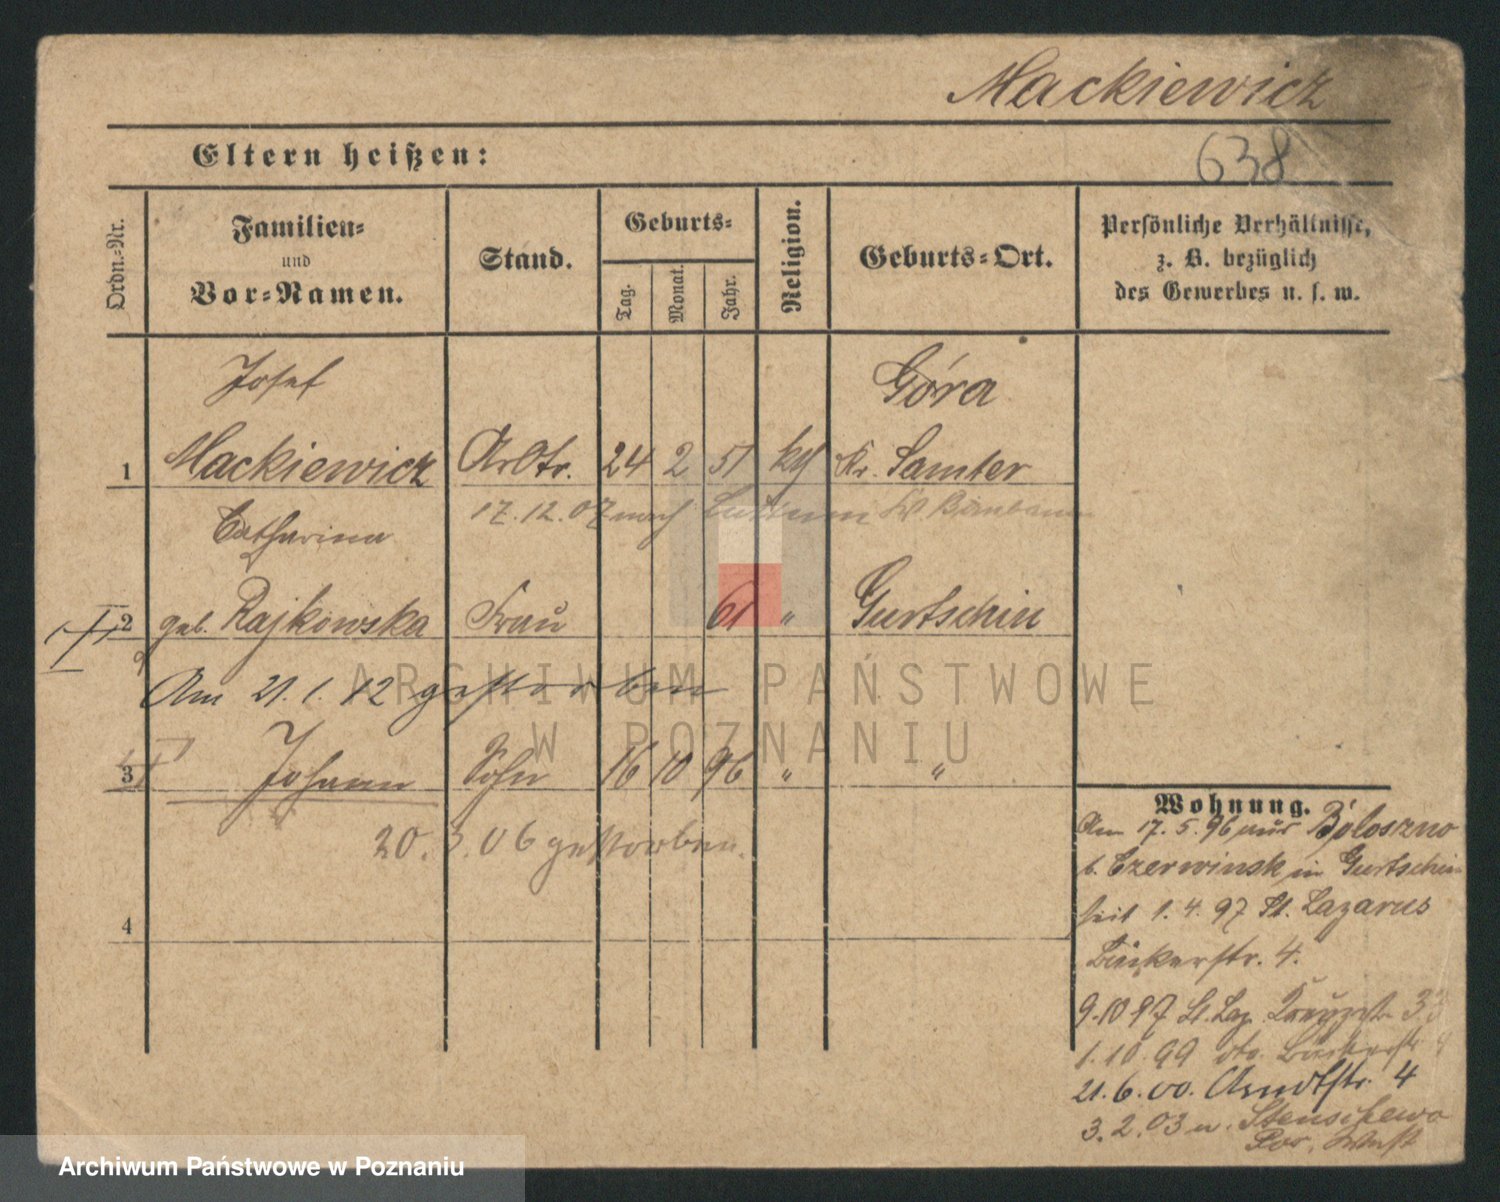 Mackiewicz
Eltern heißen:
638
Ordn.-Nr.
Familien-
und
Vor-Namen.
Stand.
Geburts-
Tag.
Monat.
Jahr.
Religion.
Geburts-Ort.
Persönliche Verhältnisse,
z. B. bezüglich
des Gewerbes u. s. w.
Josef
Góra
1 Mackiewicz Arbtr. 24 2 51 kth Kr. Samter
17.12.07 nach Birnbaum
Catharina
2 geb. Rajkowska Frau 61 " Gurtschin
Am 21.1.12 gestorben
3 Johann Sohn 16 10 96 " "
20.3.06 gestorben.
4
Wohnung.
Am 17.5.96 aus
b. Czerwinsk in Gurtschin
seit 1.4.97 St. Lazarus
Bäckerstr. 4.
9.10 97 St. Laz. 33
1.10.99 dto. Bäckerstr
21.6.00. Arndtstr. 4
3.2.03 n. Stenschewo
ARCHIWUM PAŃSTWOWE
W POZNANIU
Archiwum Państwowe w Poznaniu